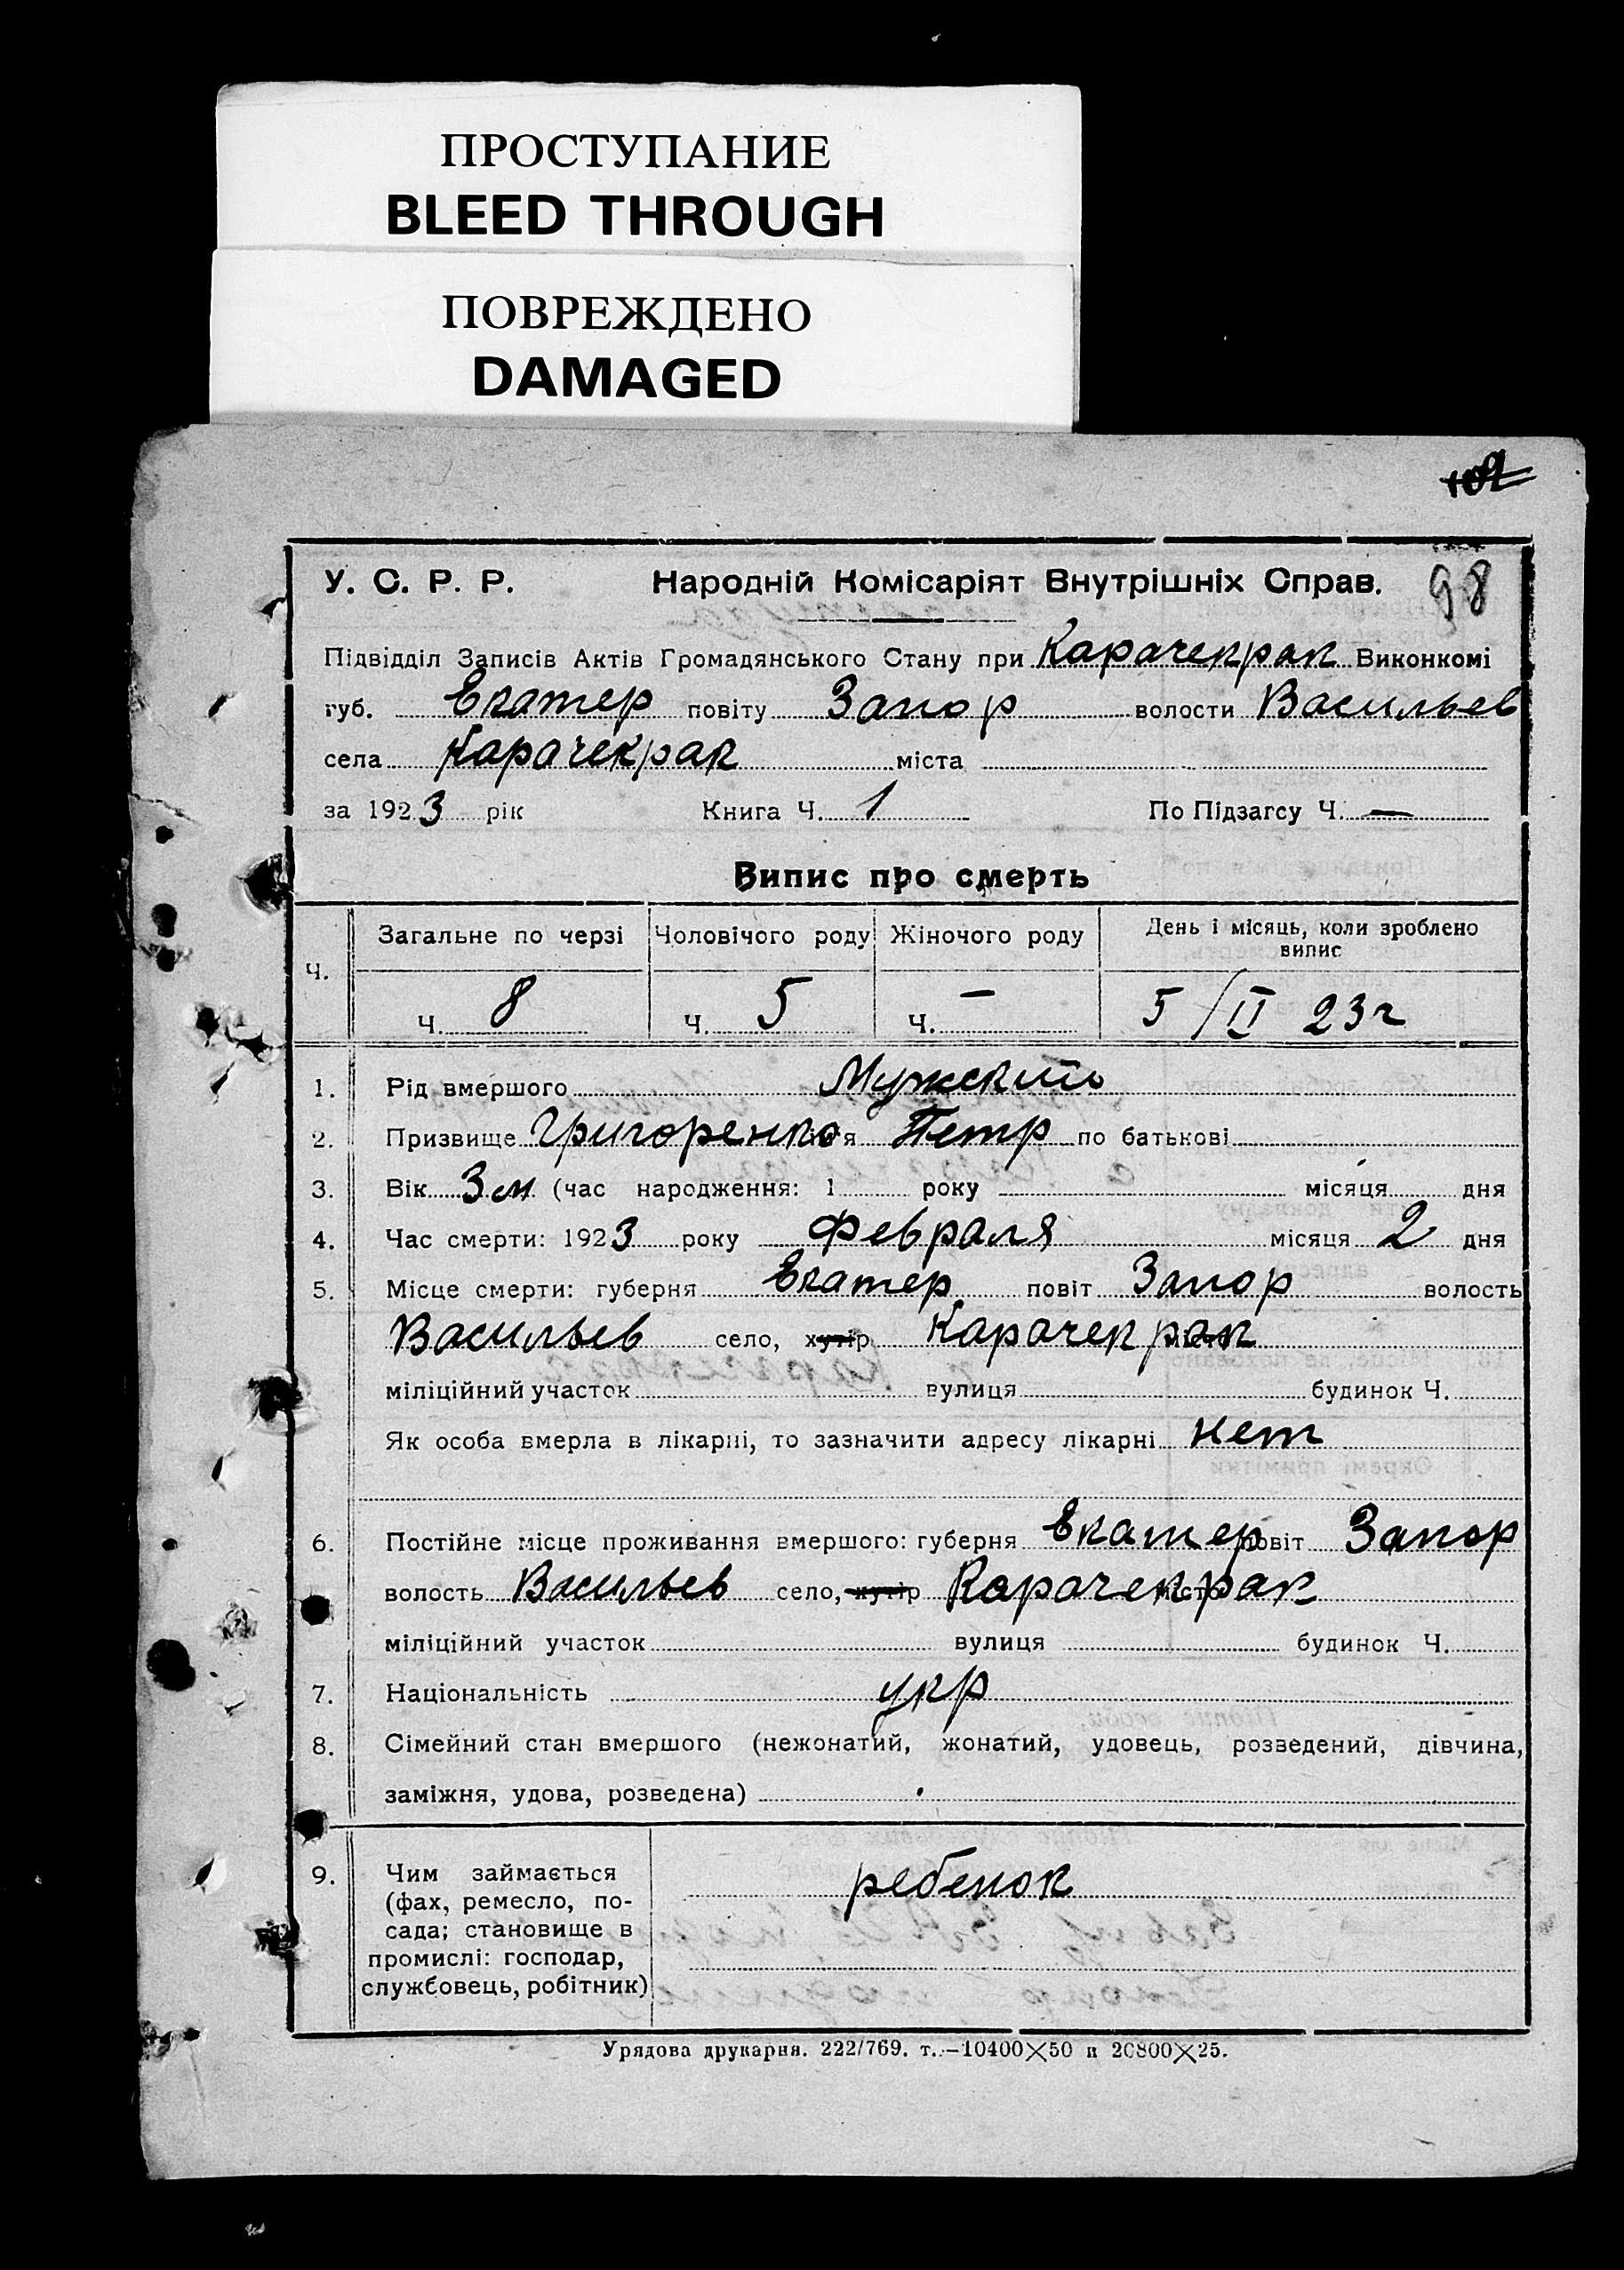 ПРОСТУПАНИЕ
BLEED THROUGH
ПОВРЕЖДЕНО
DAMAGED
102
У. С. Р. Р. Народній Комісаріят Внутрішніх Справ. 98
Підвідділ Записів Актів Громадянського Стану при Карачекрак Виконкомі
губ. Екатер повіту Запор волости Васильев
села Карачекрак міста
за 1923 рік Книга Ч. 1 По Підзагсу Ч. —
Випис про смерть
Ч. Загальне по черзі Чоловічого роду Жіночого роду День і місяць, коли зроблено
випис
Ч. 8 Ч. 5 Ч. — 5/II 23г
1. Рід вмершого Мужский
2. Призвище Григоренко ім'я Петр по батькові
3. Вік 3 м (час народження: 1 року місяця дня
4. Час смерти: 1923 року Февраля місяця 2 дня
5. Місце смерти: губерня Екатер повіт Запор волость
Васильев село, хутір Карачекрак місто
міліційний участок вулиця будинок Ч.
Як особа вмерла в лікарні, то зазначити адресу лікарні нет
6. Постійне місце проживання вмершого: губерня Екатер повіт Запор
волость Васильев село, хутір Карачекрак місто
міліційний участок вулиця будинок Ч.
7. Національність укр
8. Сімейний стан вмершого (нежонатий, жонатий, удовець, розведений, дівчина,
заміжня, удова, розведена)
9. Чим займається ребенок
(фах, ремесло, по-
сада; становище в
промислі: господар,
службовець, робітник)
Урядова друкарня. 222/769. т.—10400×50 и 20800×25.